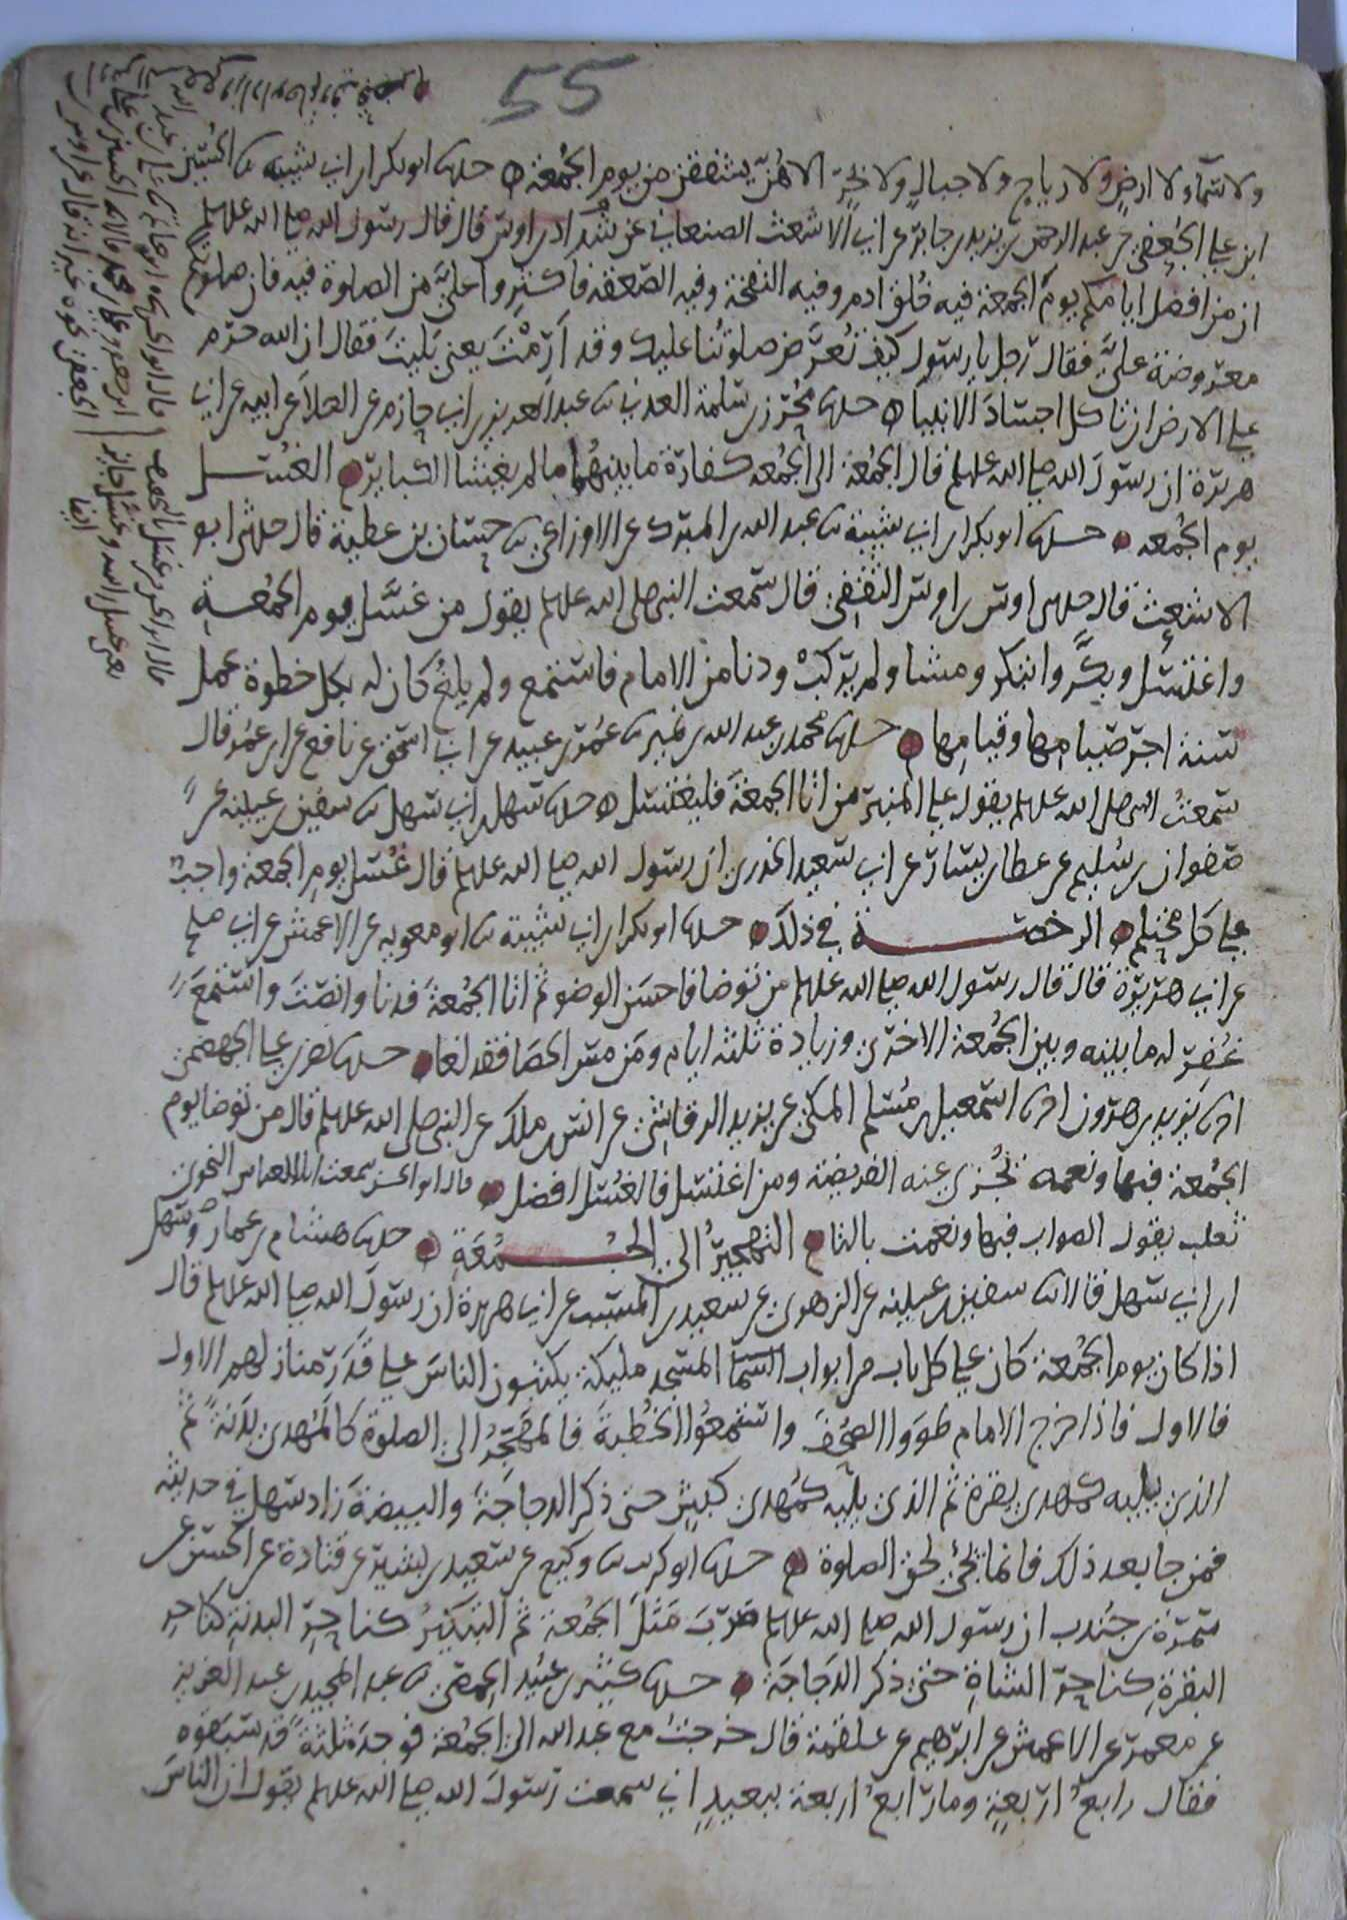 55
ولا سما ولا ارض ولا رياح ولا جبال ولا بحر الا هن يشفقن من يوم الجمعة حدثنا ابو بكر ابن ابي شيبه ثنا الحسين
ابن علي الجعفي عن عبد الرحمن بن يزيد بن جابر عن ابي الاشعث الصنعاني عن شداد بن اوس قال قال رسول الله صلى الله عليه وسلم
ان من افضل ايامكم يوم الجمعة فيه خلق ادم وفيه النفخة وفيه الصعقه فاكثروا علي من الصلوة فيه فان صلوتكم
معروضة علي فقال رجل يا رسول كيف تعرض صلوتنا عليك وقد ارمت يعني بليت فقال ان الله حرم
على الارض ان تاكل اجساد الانبيا حدثنا محرز بن سلمة العدني ثنا عبد العزيز بن ابي حازم عن العلا عن ابيه عن ابي
هريرة ان رسول الله صلى الله عليه وسلم قال الجمعة الى الجمعه كفارة ما بينهما ما لم يغشا الكباير الغسل
يوم الجمعه حدثنا ابو بكر ابن ابي شيبة ثنا عبد الله بن المبرك عن الاوزاعي ثنا حسان بن عطية قال حدثني ابو
الاشعث قال حدثني اوس بن اوس الثقفي قال سمعت النبي صلى الله عليه وسلم يقول من غسل يوم الجمعة
واغتسل وبكر وابتكر ومشا ولم يركب ودنا من الامام فاستمع ولم يلغ كان له بكل خطوة عمل
سنة اجر صيامها وقيامها حدثنا محمد بن عبد الله بن نمير ثنا عمر بن عبيد عن ابي اسحق عن نافع عن ابن عمر قال
سمعت النبي صلى الله عليه وسلم يقول على المنبر من اتا الجمعة فليغتسل حدثنا سهل بن ابي سهل ثنا سفين بن عيينه عن
صفوان بن سليم عن عطا بن يسار عن ابي سعيد الخدري ان رسول الله صلى الله عليه وسلم قال غسل يوم الجمعة واجب
على كل محتلم الرخصة في ذلك حدثنا ابو بكر ابن ابي شيبة ثنا ابو معويه عن الاعمش عن ابي صلح
عن ابي هريرة قال قال رسول الله صلى الله عليه وسلم من توضا فاحسن الوضو ثم اتا الجمعة فدنا وانصت واستمع
غفر له ما بينه وبين الجمعة الاخرى وزيادة ثلثه ايام ومن مس الحصا فقد لغا حدثنا نصر بن علي الجهضمي
انا يزيد بن هرون انا اسمعيل بن مسلم المكي عن يزيد الرقاشي عن انس بن ملك عن النبي صلى الله عليه وسلم قال من توضا يوم
الجمعة فبها ونعمه تجزي عنه الفريضة ومن اغتسل فالغسل افضل قال ابو الحسن سمعت ابا العباس النحوي
ثعلب يقول الصواب فبها ونعمت بالتا التهجير الى الجمعة حدثنا هشام بن عمار وسهل
ابن ابي سهل قالا ثنا سفين بن عيينه عن الزهري عن سعيد بن المسيب عن ابي هريرة ان رسول الله صلى الله عليه وسلم قال
اذا كان يوم الجمعة كان على كل باب من ابواب المسجد مليكة يكتبون الناس على قدر منازلهم الاول
فالاول فاذا خرج الامام طووا الصحف واستمعوا الخطبة فالمهجر الى الصلوة كالمهدي بدنة ثم
الذي يليه كمهدي بقرة ثم الذي يليه كمهدي كبش حتى ذكر الدجاجة والبيضة زاد سهل في حديثه
فمن جا بعد ذلك فانما يجي لحق الصلوة حدثنا ابو كريب ثنا وكيع عن سعيد بن بشير عن قتادة عن الحسن عن
سمرة بن جندب ان رسول الله صلى الله عليه وسلم ضرب مثل الجمعة ثم التبكير كناحر البدنة كناحر
البقرة كناحر الشاة حتى ذكر الدجاجة حدثنا كثير بن عبيد الحمصي ثنا عبد المجيد بن عبد العزيز
عن معمر عن الاعمش عن ابرهيم عن علقمة قال خرجت مع عبد الله الى الجمعة فوجد ثلثة قد سبقوه
فقال رابع اربعة وما رابع اربعة ببعيد اني سمعت رسول الله صلى الله عليه وسلم يقول ان الناس